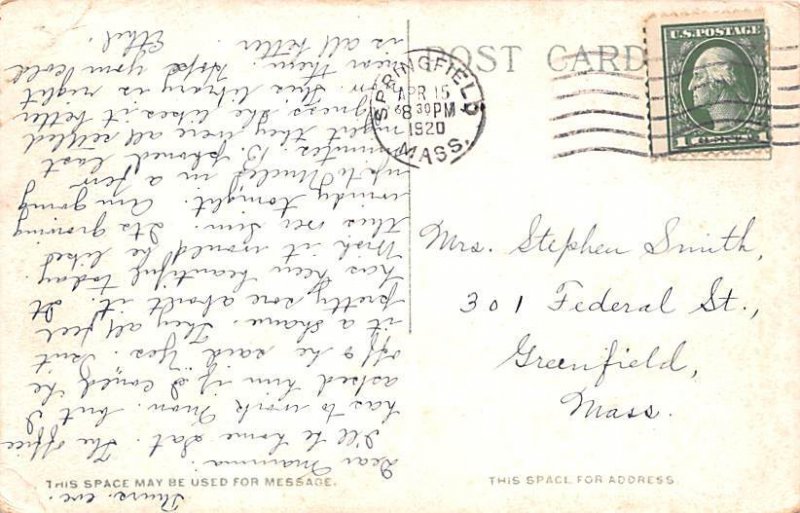 POST CARD
SPRINGFIELD
APR 15
8 30 PM
1920
MASS.
U.S. POSTAGE
1 CENT 1
Mrs. Stephen Smith,
301 Federal St.,
Greenfield,
Mass.
THIS SPACE MAY BE USED FOR MESSAGE.
THIS SPACE FOR ADDRESS
Thurs. eve.
Dear Mamma.
I'll be home Sat. The office
has to work Mon. but I
asked him if I could be
off & he said yes. Isn't
it a shame. They all feel
pretty sore about it. It
has been beautiful today.
Wish it would be like
this over Sun. Its growing
windy tonight. Am going
up to Uncle's in a few
minutes. B. phoned last
night they were all settled
She likes it better
This library is right
near them. Hope your cold
is all better.
Ethel.